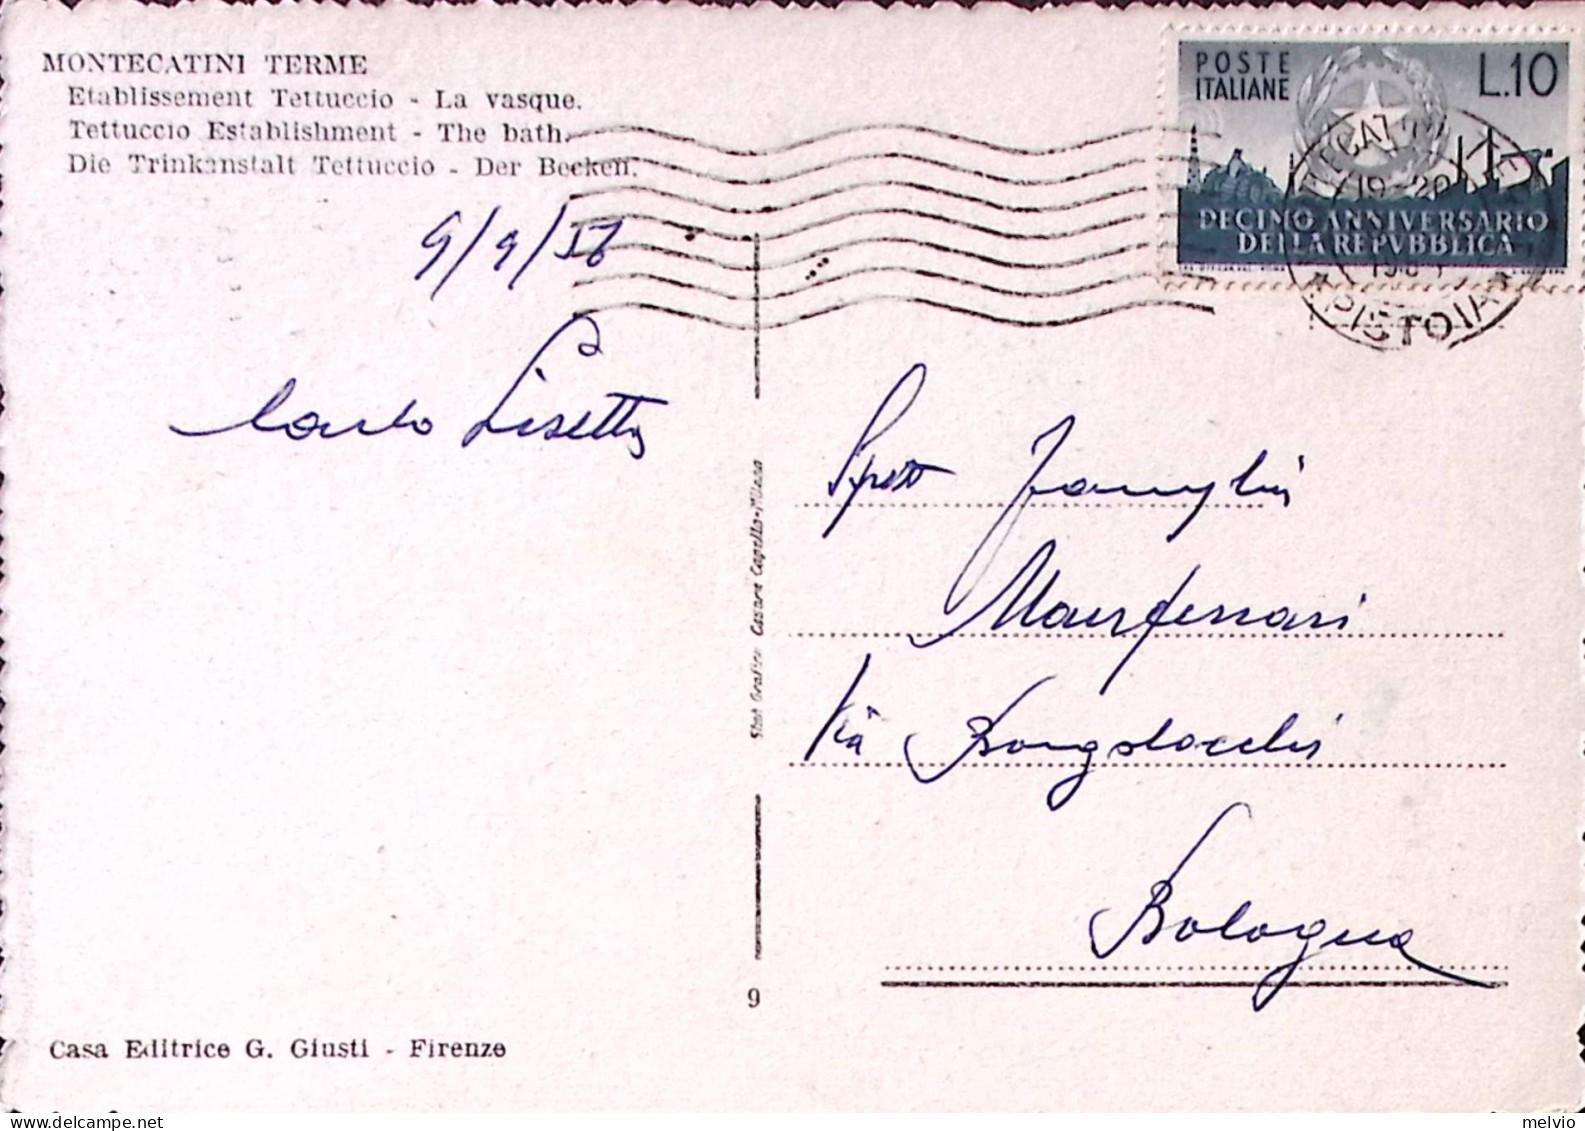 MONTECATINI TERME
Etablissement Tettuccio - La vasque.
Tettuccio Establishment - The bath.
Die Trinkanstalt Tettuccio - Der Becken.
POSTE
ITALIANE
L.10
DECIMO ANNIVERSARIO
DELLA REPVBBLICA
19-20
PISTOIA
9/9/56
Carlo Lisetta
Spett Famiglia
Manferrari
Via
Bologna
Stab Grafico Cesare Capello-Milano
9
Casa Editrice G. Giusti - Firenze
delcampe.net
melvio